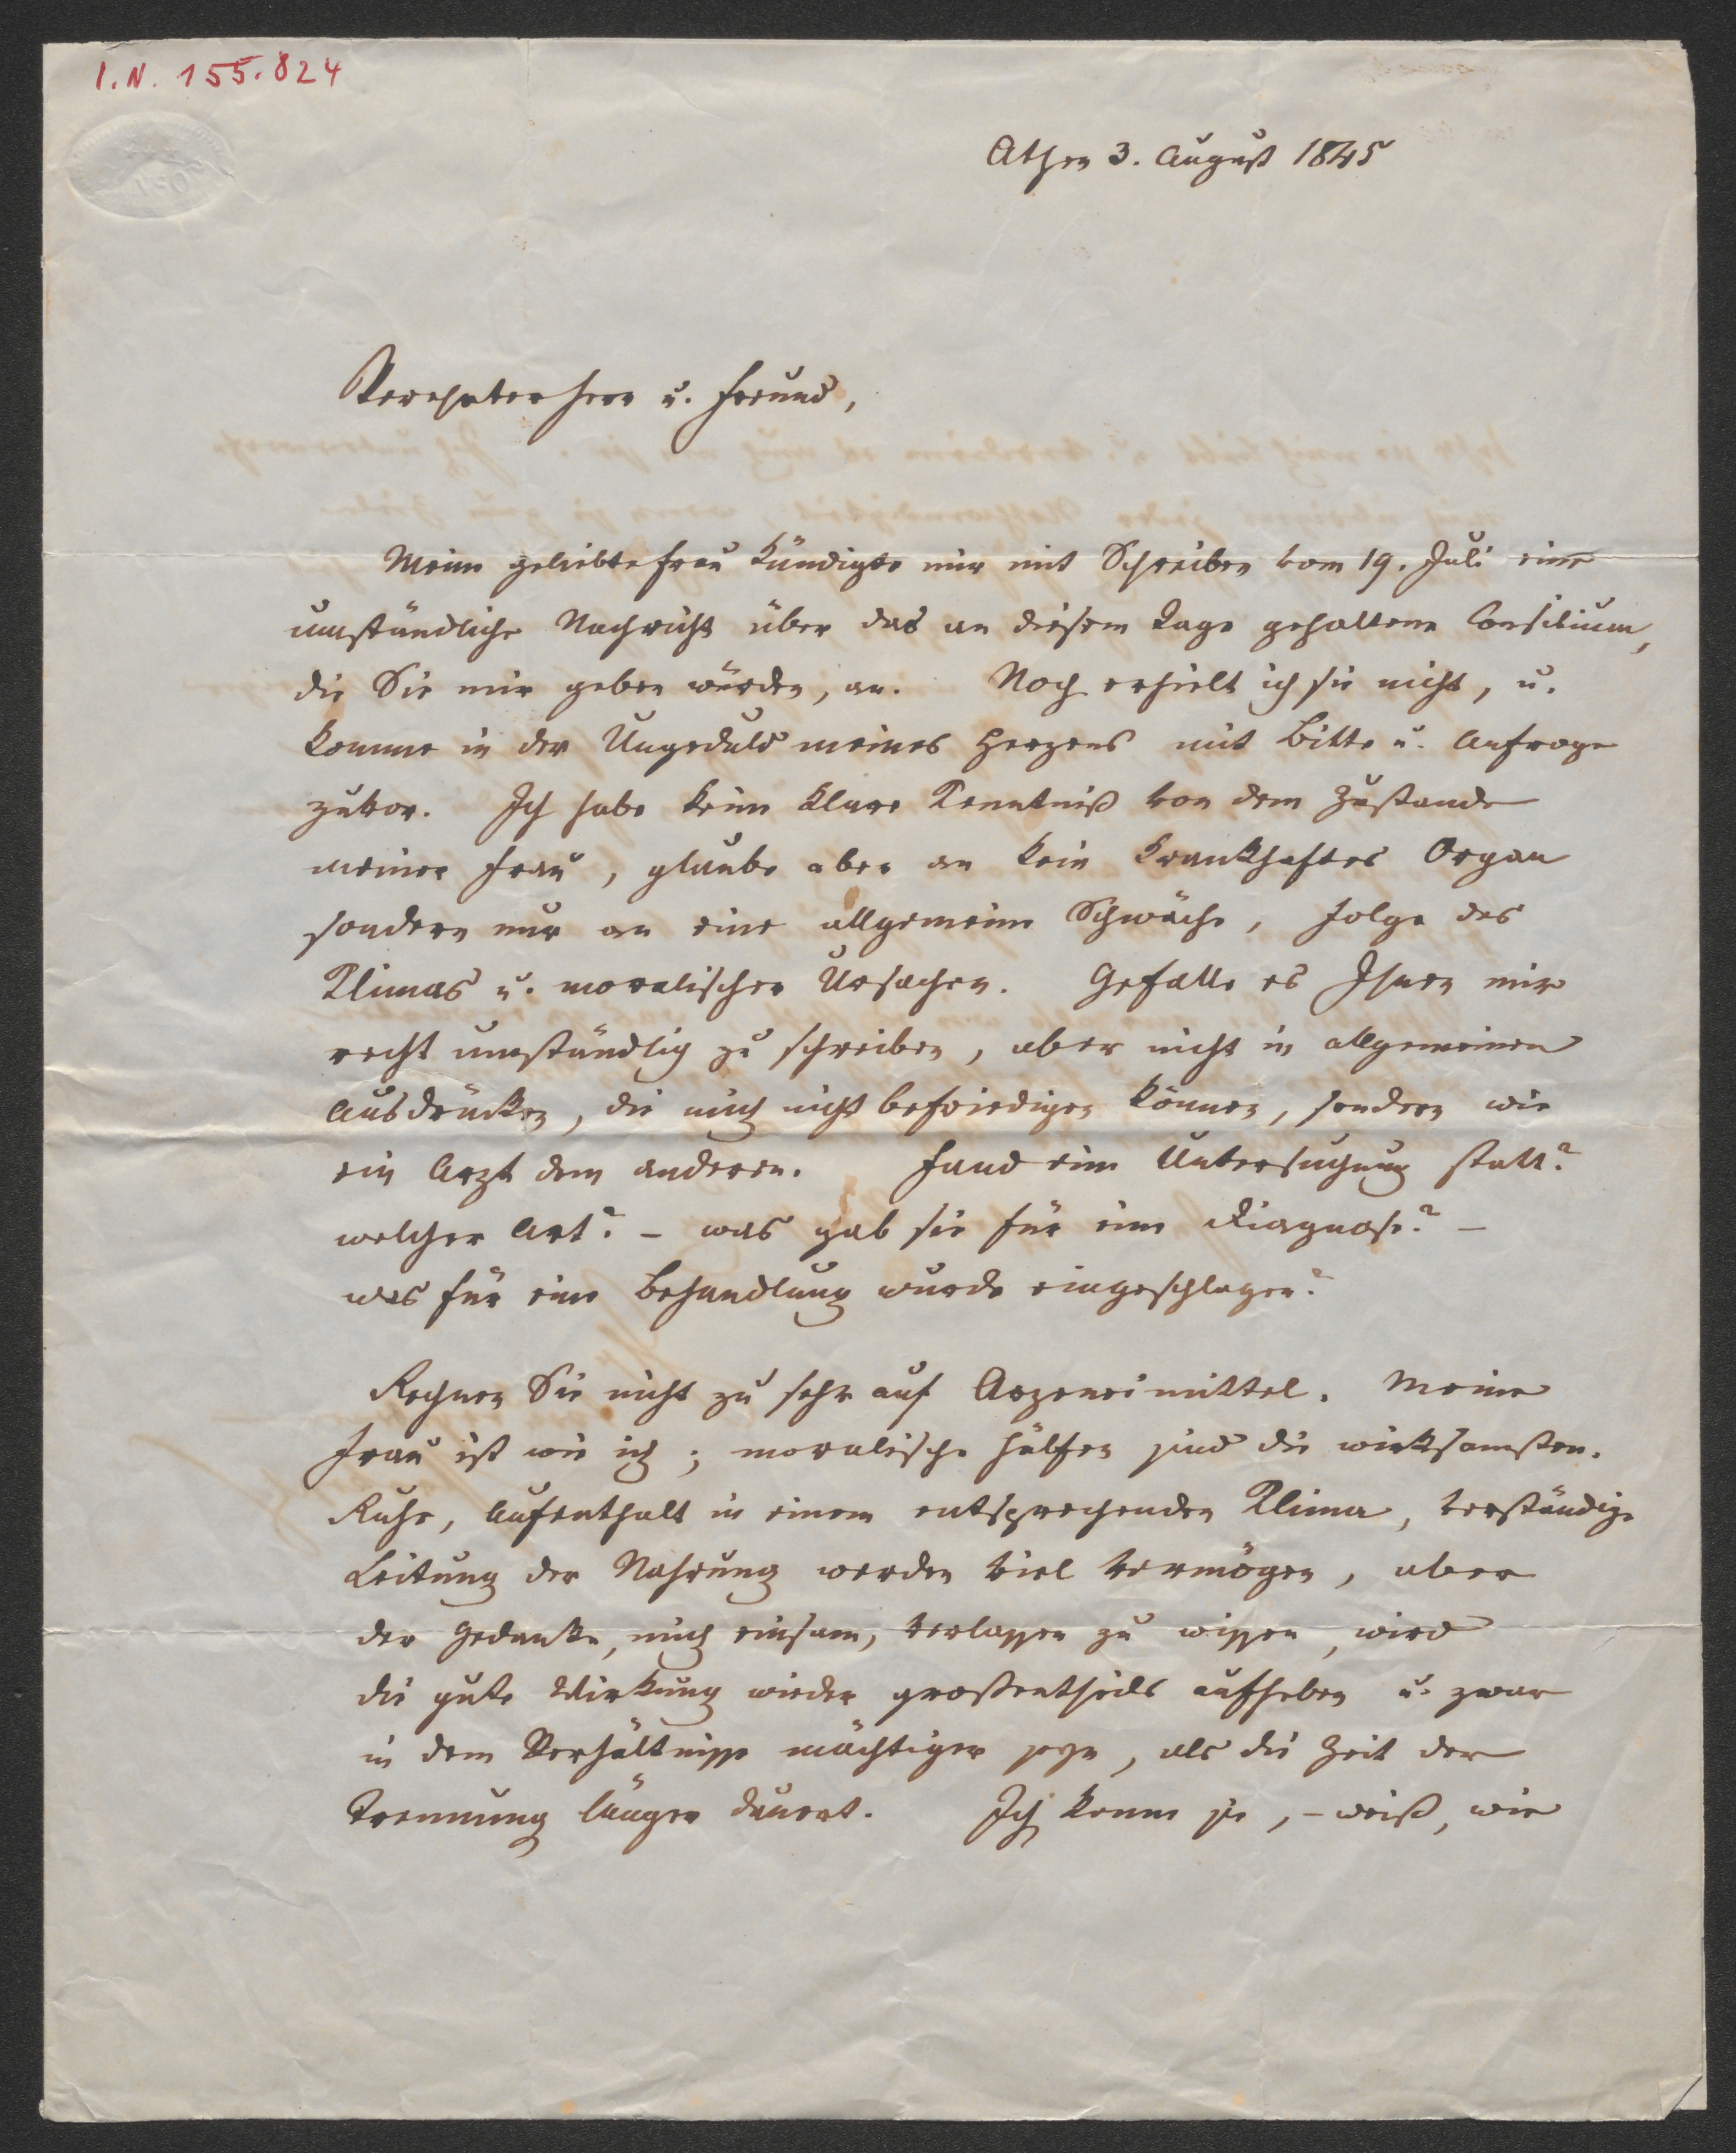 I.N. 155.824
Athen 3. August 1845
Verehrter Herr u. Freund,
Meine geliebte Frau kündigte mir mit Schreiben vom 19. Juli eine
umständliche Nachricht über das an diesem Tage gehaltene Consilium,
die Sie mir geben würden, an. Noch erhielt ich sie nicht, u.
komme in der Ungeduld meines Herzens mit Bitte u. Anfrage
zuvor. Ich habe keine klare Kenntniß von dem Zustande
meiner Frau, glaube aber an kein krankhaftes Organ
sondern nur an eine allgemeine Schwäche, Folge des
Klimas u. moralischer Ursachen. Gefalle es Ihnen mir
recht umständlich zu schreiben, aber nicht in allgemeinen
Ausdrücken, die mich nicht befriedigen können, sondern wie
ein Arzt dem anderen. Fand eine Untersuchung statt?
welcher Art? – was gab sie für eine Diagnose? –
was für eine Behandlung wurde eingeschlagen?
Rechnen Sie nicht zu sehr auf Arzeneimittel. Meine
Frau ist wie ich; moralische Hülfen sind die wirksamsten.
Ruhe, Aufenthalt in einem entsprechenden Klima, verständige
Leitung der Nahrung werden viel vermögen, aber
der Gedanke, mich einsam, verlassen zu wissen, wird
die gute Wirkung wieder großentheils aufheben u. zwar
in dem Verhältnisse mächtiger seyn, als die Zeit der
Trennung länger dauert. Ich kenne sie, – weiß, wie